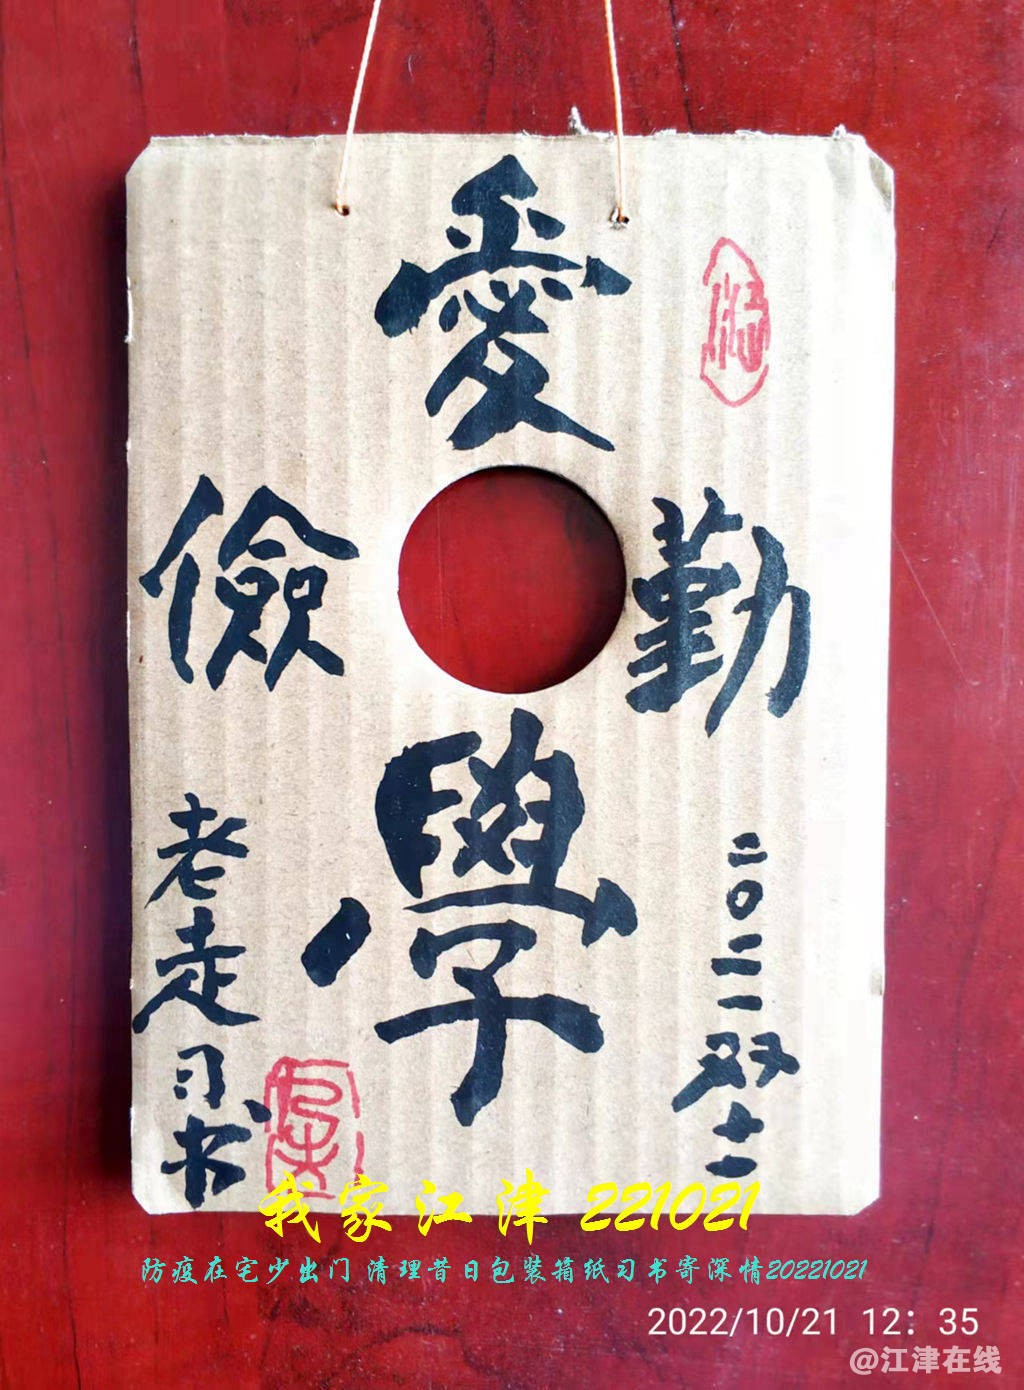 愛
勤
儉
學
二〇二二双十一
老走习书
我家江津 221021
防疫在宅少出门 清理昔日包装箱纸习书寄深情20221021
2022/10/21 12: 35
@江津在线